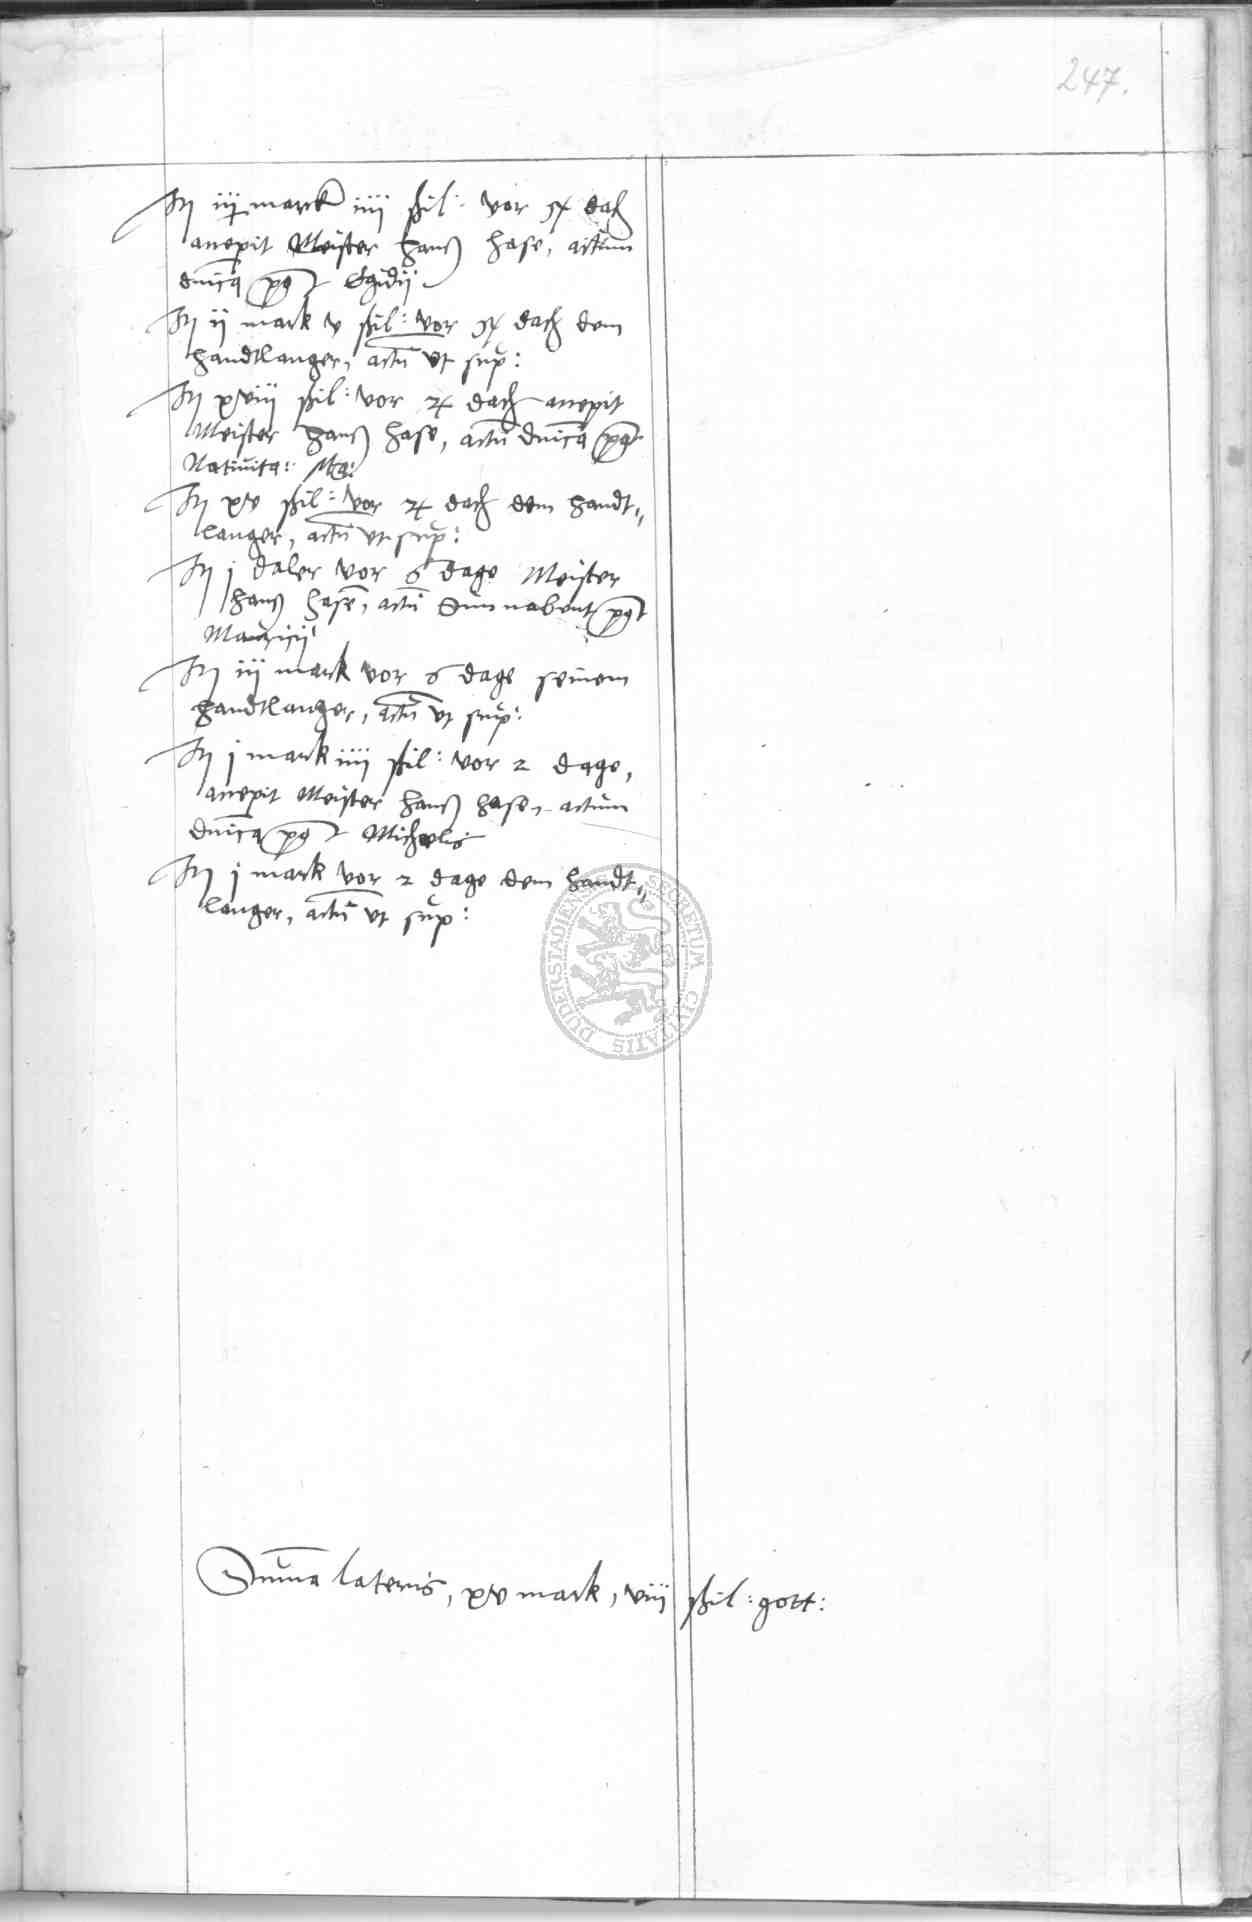 247.
It iij marck iiij ßil: vor 5½ dach
accepit Meister Hans Hase, actum
dnica post Egidij
It ij mark v ßil: vor 5½ dach dem
handtlanger, actu vt sup:
It xviij ßil: vor 2½ dach accepit
Meister Hans Hase, actu dnica post
Natiuita: Ma:
It xv ßil: vor 2½ dach dem handt„
langer, actu vt sup:
It j daler vor 6 dage Meister
Hans Hase, actu Sunnabent post
Mauricij
It iij mark vor 6 dage seinem
handtlanger, actu vt sup:
It j mark iiij ßil: vor 2 dage,
accepit Meister Hans Hase, actum
dnica post Michaelis
It j mark vor 2 dage dem handt„
langer, actu vt sup:
SECRETUM CIVITATIS DUDERSTADIENSIS
Suma lateris, xv mark, viij ßil: gott: